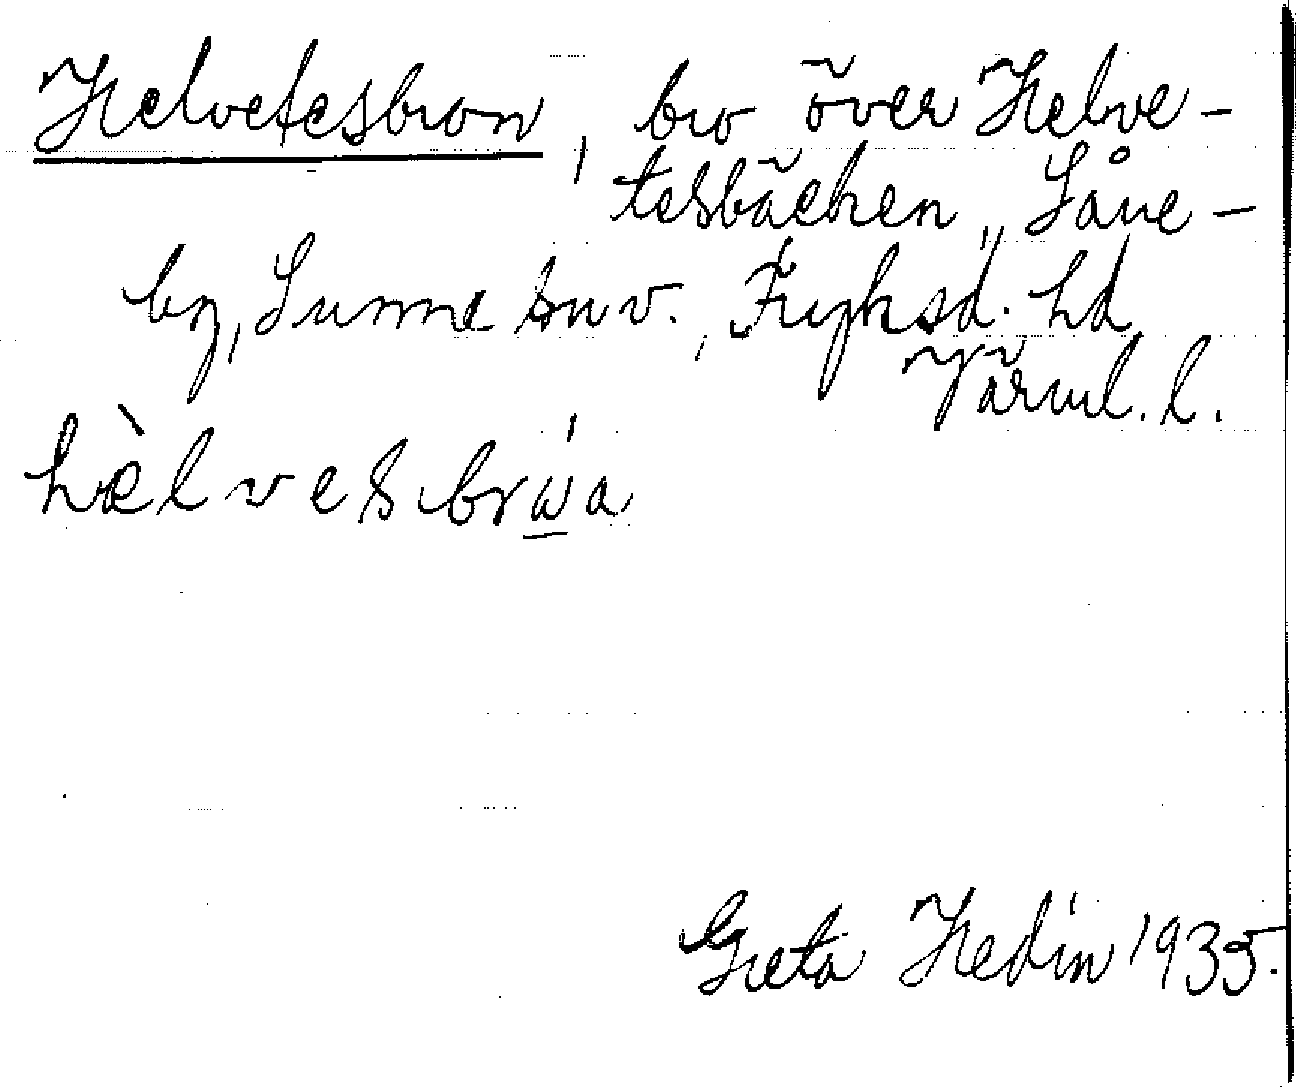 Helvetesbron, bro över Helve-
tesbäcken, Såne-
by, Sunne snv., Fryksd. hd
Värml. l.
hèlvesbrẃa
Greta Hedin 1935.